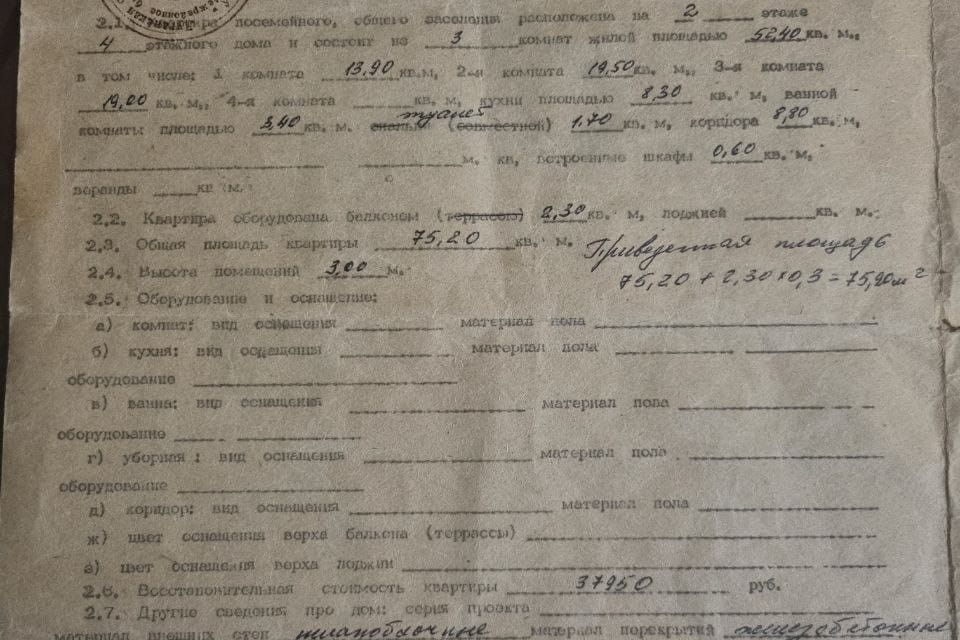 2.1. посемейного, общего заселения расположена на 2 этаже
4 этажного дома и состоит из 3 комнат жилой площадью 52,40 кв. м.,
в том числе: 1 комната 13,90 кв.м, 2-я комната 19,50 кв. м., 3-я комната
19,00 кв. м., 4-я комната ____ кв. м, кухни площадью 8,30 кв. м, ванной
туалет
комнаты площадью 3,40 кв. м. (совместной) 1.70 кв. м, коридора 8,80 кв. м,
____ м. кв, встроенные шкафы 0,60 кв. м,
веранды ____ кв м.
2.2. Квартира оборудована балконом (террасою) 2,30 кв. м, лоджией ____ кв. м.
2.3. Общая площадь квартиры 75,20 кв. м. Приведенная площадь
2.4. Высота помещений 3,00 м. 75,20 + 2,30 х 0,3 = 75,90 м²
2.5. Оборудование и оснащение:
а) комнат: вид оснащения ____ материал пола ____
б) кухня: вид оснащены ____ материал пола ____
оборудование ____
в) ванна: вид оснащения ____ материал пова ____
оборудованно ____
г) уборная : вид оснащения ____ материал пола ____
оборудование ____
д) коридор: вид оснащения ____ материал пола ____
ж) цвет оснащения верха балкона (террассы) ____
з) цвет оснащения верха лоджии ____
2.6. Восстановительная стоимость квартиры 37950 руб.
2.7. Другие сведения про дом: серия проекта ____
материал внешних стен шлакоблочные материал перекрытий железобетонные